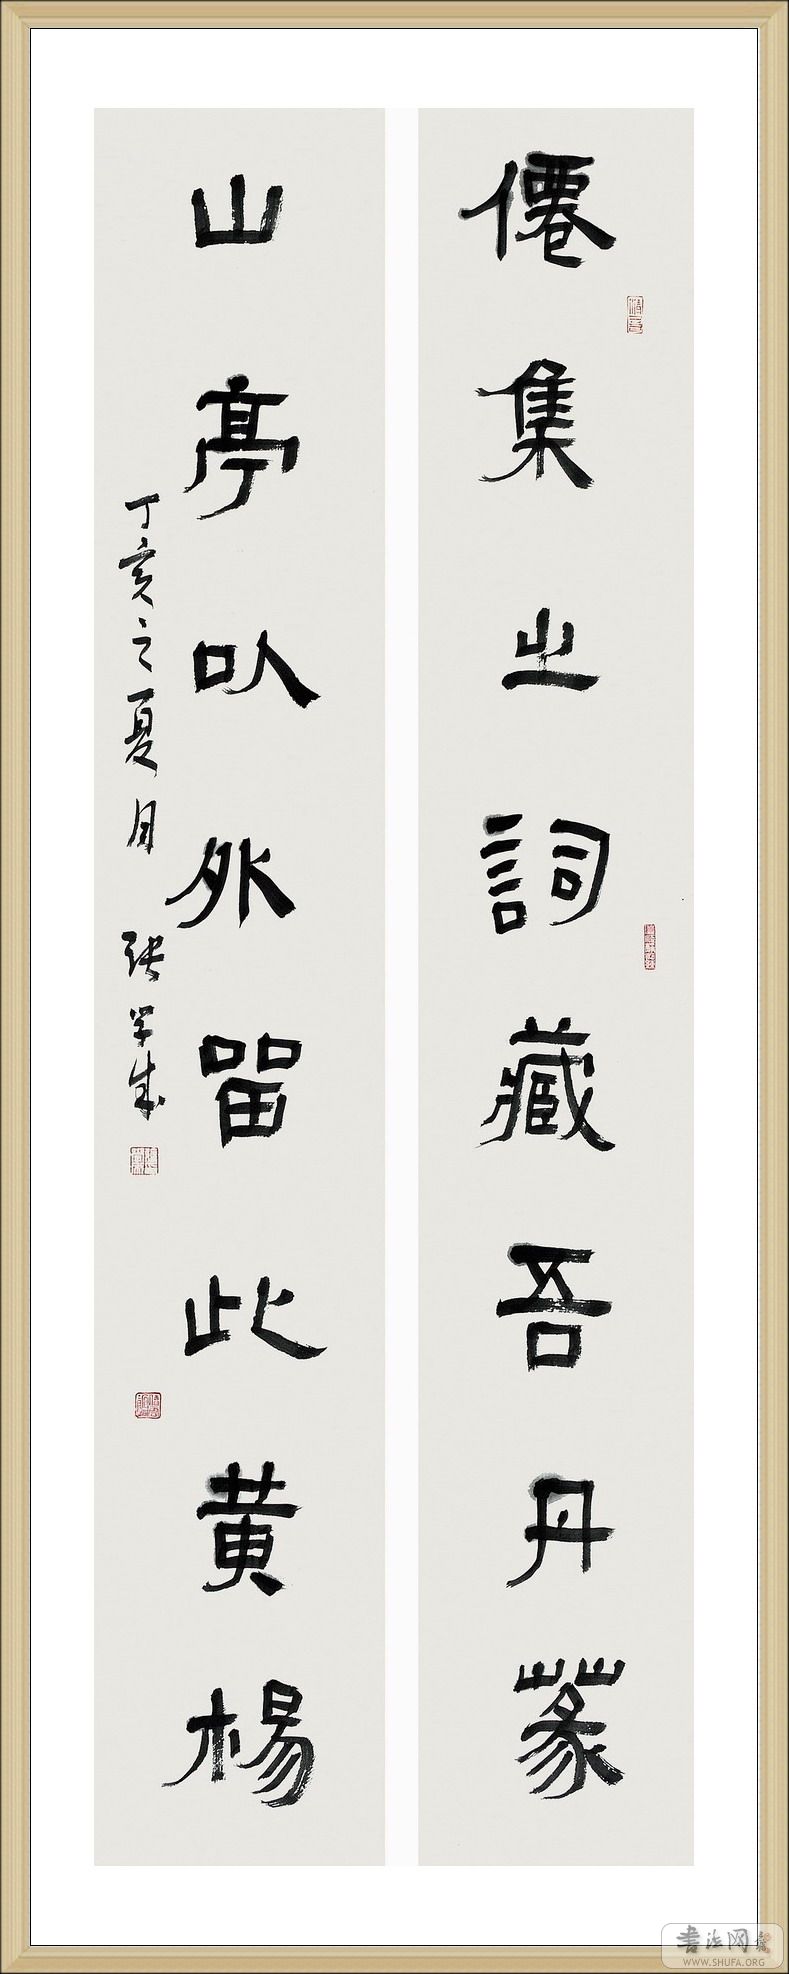 僊集之詞藏吾丹篆
山亭以外留此黄楊
丁亥之夏月 张学成
書法网
WWW.SHUFA.ORG